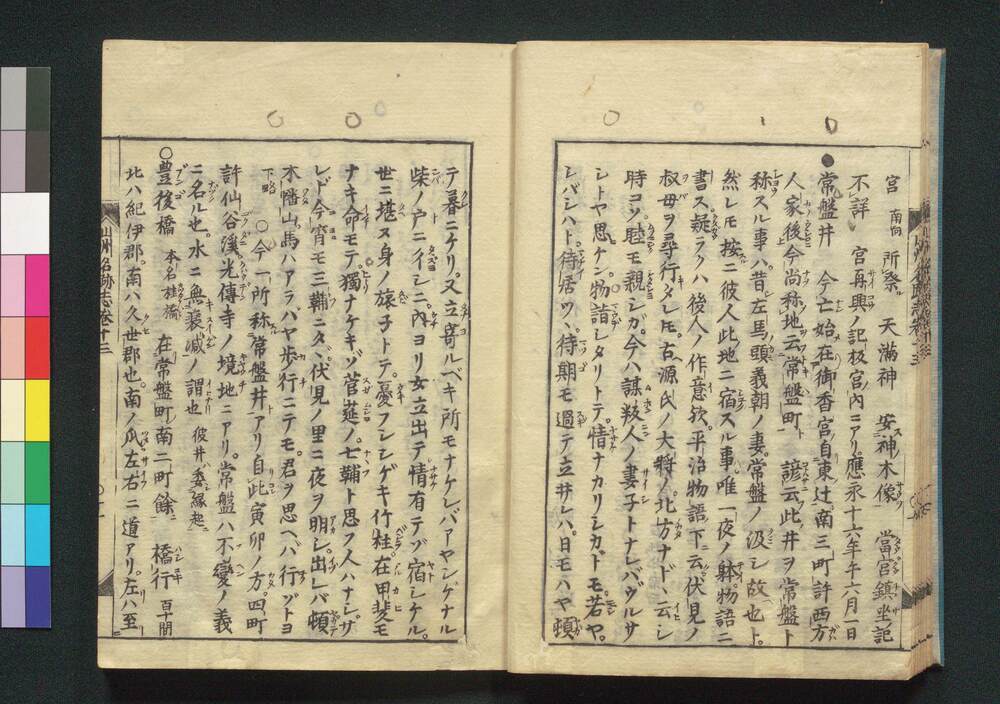 宮 南向 所祭 天滿神 安神木像 當宮鎮坐記
不詳 宮再興ノ記板宮內ニアリ應永十六年午六月一日
●常盤井 今亡始在御香宮自東辻南三町許西方
人家後今尚称地云常盤町ト 諺云此井ヲ常盤ト
称スル事ハ昔左馬頭義朝ノ妻常盤ノ汲シ故也ト。
然レモ按ニ彼人此地ニ宿スル事唯一夜ノ躰物語ニ
書ス疑ラクハ後人ノ作意欤。平治物語下ニ云伏見ノ
叔母ヲ尋行タレモ。古源氏ノ大將ノ北方ナド、云シ
時コソ。睦モ親シガ。今ハ謀叛人ノ妻子トナレバウルサ
シトヤ思ケン。物詣シタリトテ。情ナカリシカトモ。若ヤ。
シバシハト。待居ツ、待期モ過テ立井シハ。日モハヤ頓
テ暮ニケリ。又立寄ルベキ所モナケレバアヤシゲナル
柴ノ戸ニイシニ。內ヨリ女立出テ情有テゾ宿シケル。
世ニ堪ヌ身ノ旅子トテ。憂フシシゲキ竹柱。在甲斐モ
ナキ命モテ。獨ナケキゾ菅莚ノ。七䩭ト思フ人ハナシ。サ
レド今宵モ三䩭ニタヾ伏見ノ里ニ夜ヲ明シ。出レバ頓
木幡山。馬ハアラバヤ歩行ニテモ。君ヲ思ヘバ行ゾトヨ
下略 ○今所称常盤井アリ自此寅卯ノ方。四町
許仙谷溪光傳寺ノ境地ニアリ。常盤ハ不變ノ義
ニ名ル也。水ニ無衰減ノ謂也 彼井委縁起ニ
○豊後橋 本名桂橋 在常盤町南二町餘 橋行 百十間
北ハ紀伊郡。南ハ久世郡也。南ノ爪左右ニ道アリ。左ハ至
山州名跡志巻十三